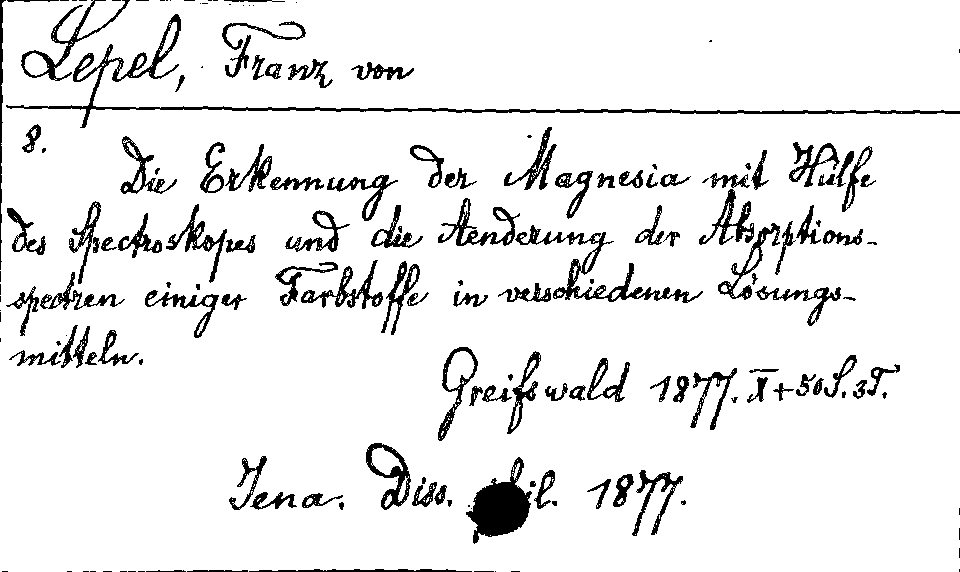 Lepel, Franz von
8.
Die Erkennung der Magnesia mit Hülfe
des Spectroskopes und die Aenderung der Absorptions-
spectren einiger Farbstoffe in verschiedenen Lösungs-
mitteln.
Greifswald 1877. X+50S. 3T.
Jena. Diss. 1877.